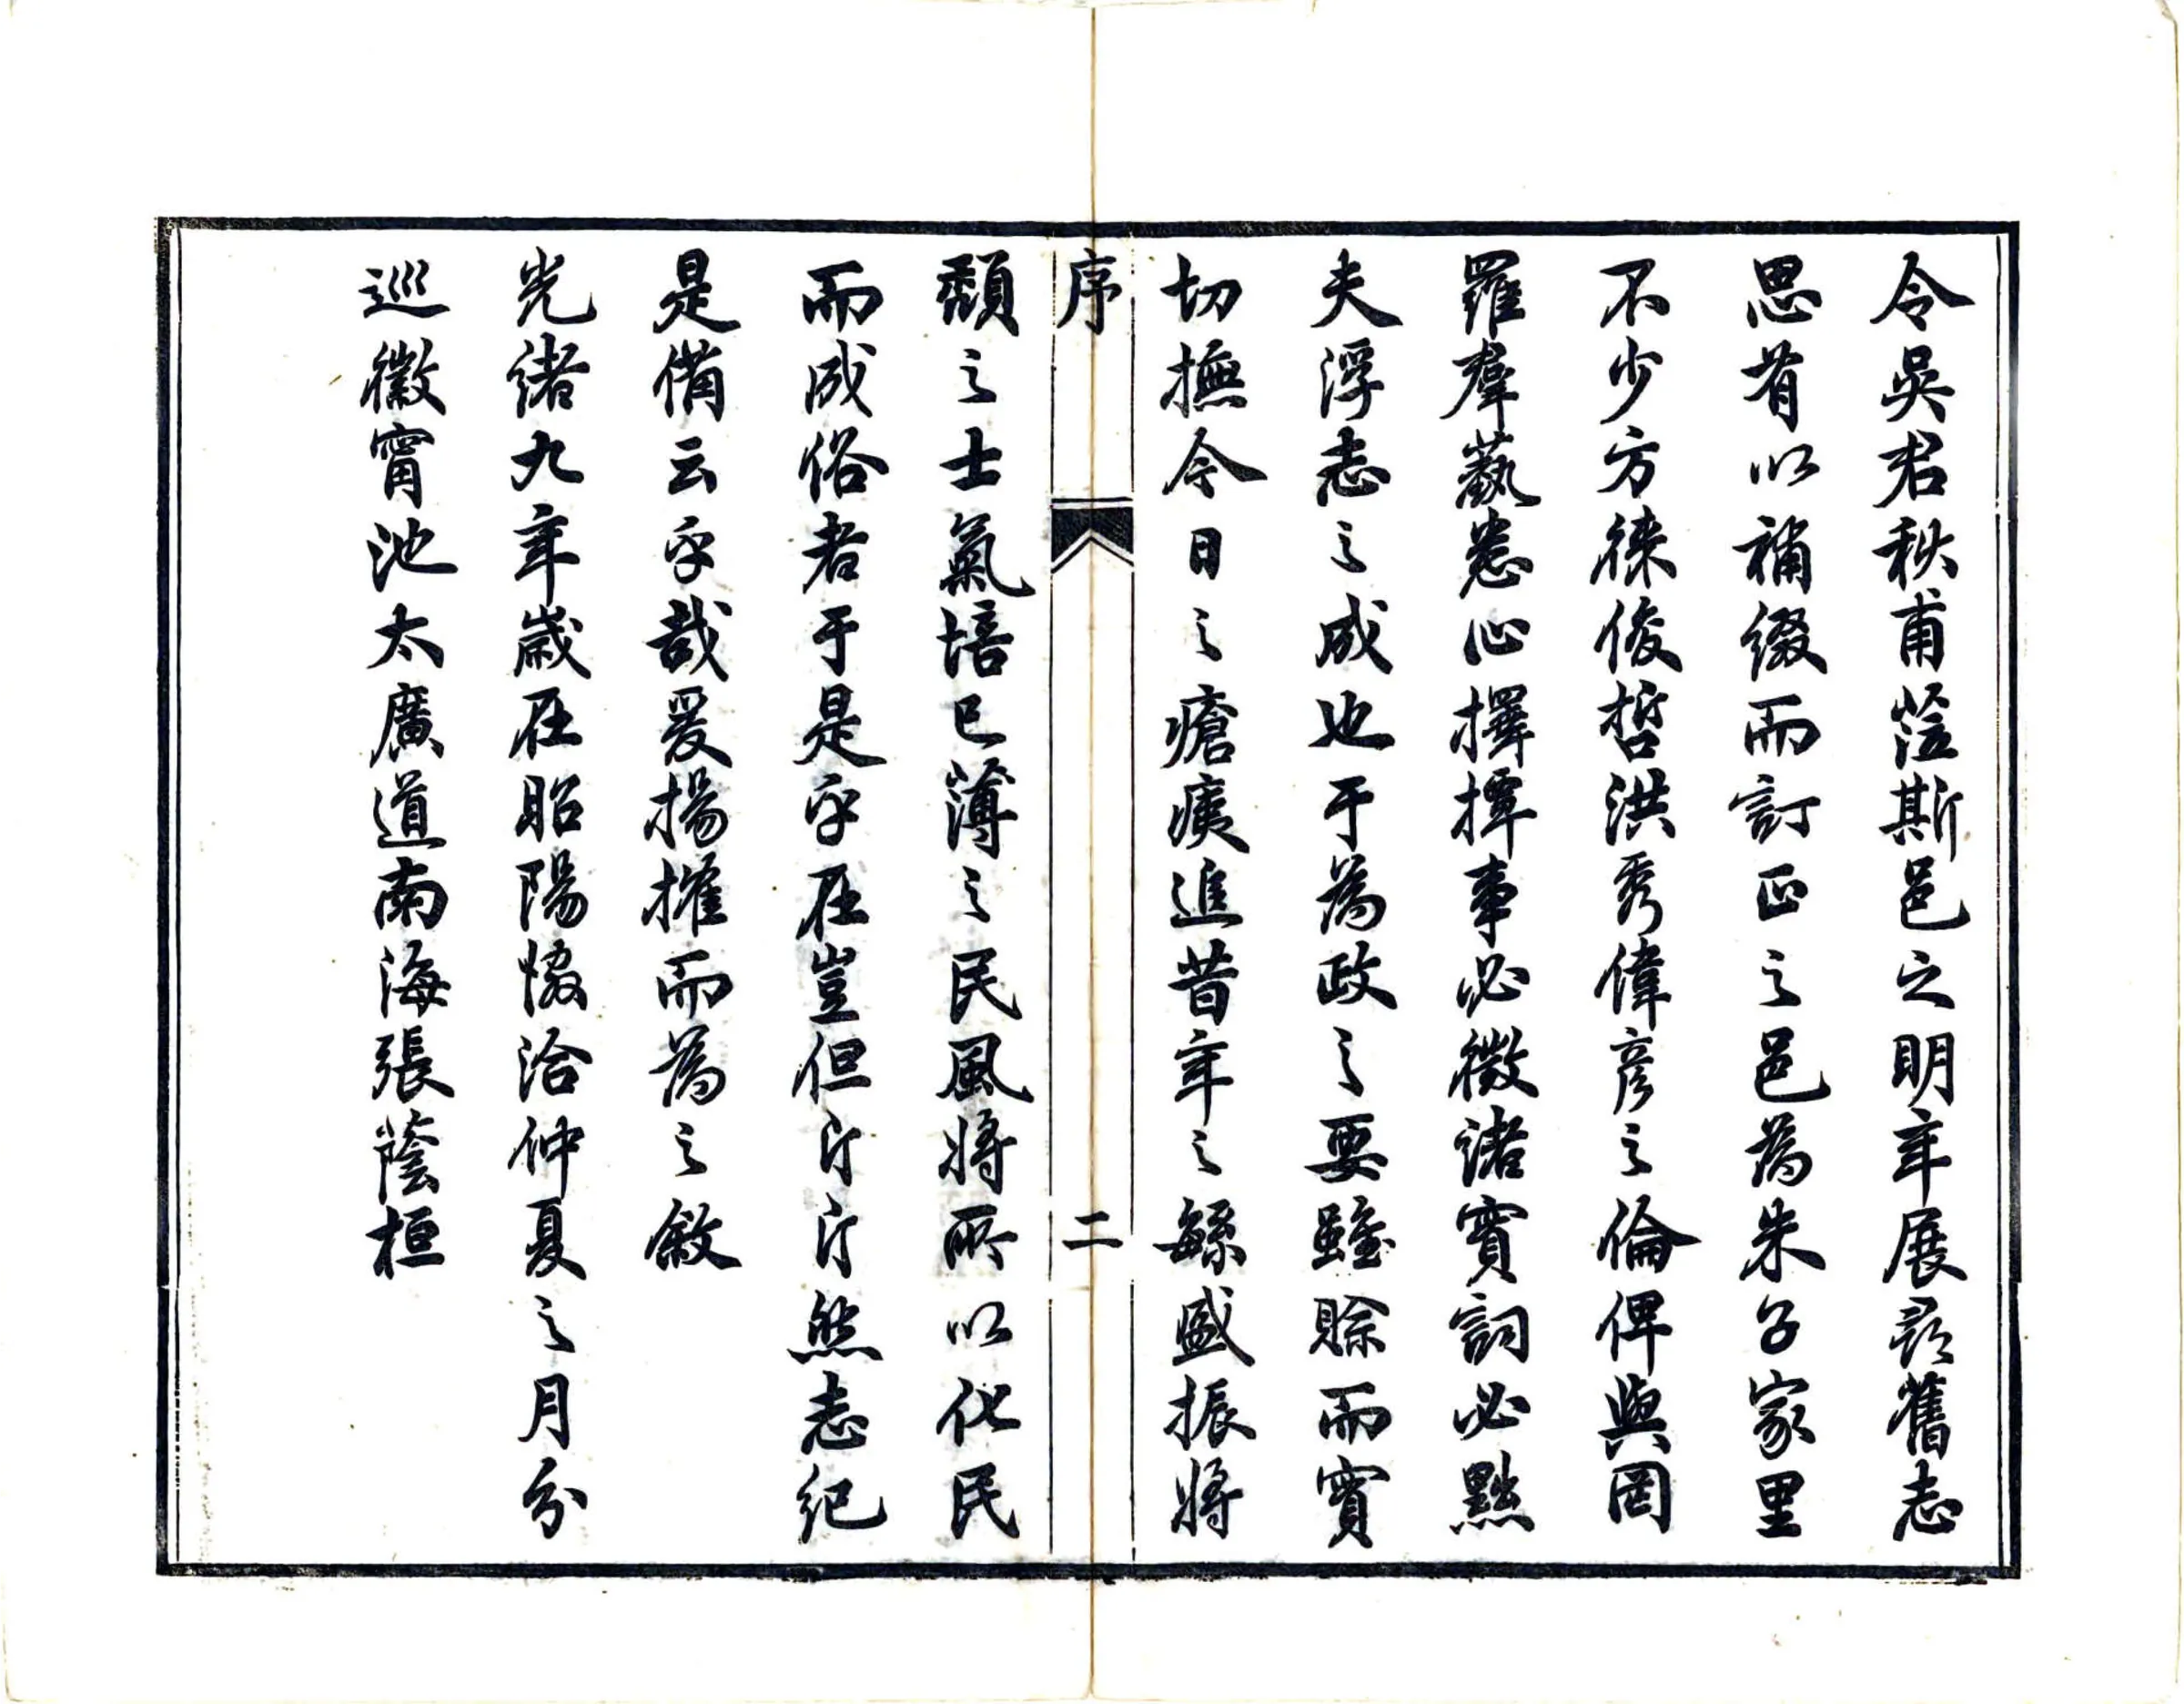 令吳君秋甫蒞斯邑之明年展尋舊志
思有以補綴而訂正之邑為朱子家里
不少方徠俊哲洪秀偉彥之倫俾與罔
羅羣藝悉心擇撢事必徵諸實詞必黜
夫浮志之成也于為政之要雖賒而實
切撫今日之瘡痍追昔年之緐盛振將
序 二
頹之士氣培已薄之民風將所以化民
而成俗者于是乎在豈但斤斤然志紀
是備云乎哉爰揚搉而為之敘
光緒九年歲在昭陽協洽仲夏之月分
巡徽甯池太廣道南海張蔭桓